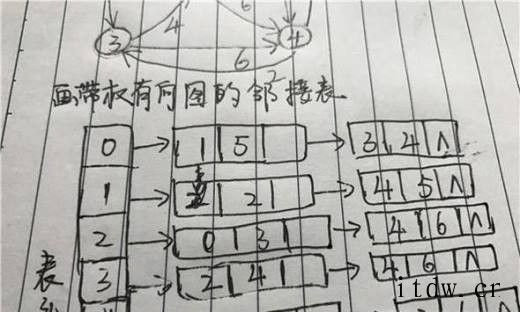 4 6
3 4
6
画带权有向图的邻接表
0 1 5 3 4 ∧
1 2 4 5 ∧
2 0 3 4 6 ∧
3 2 4 4 6 ∧
表
itdw.cr